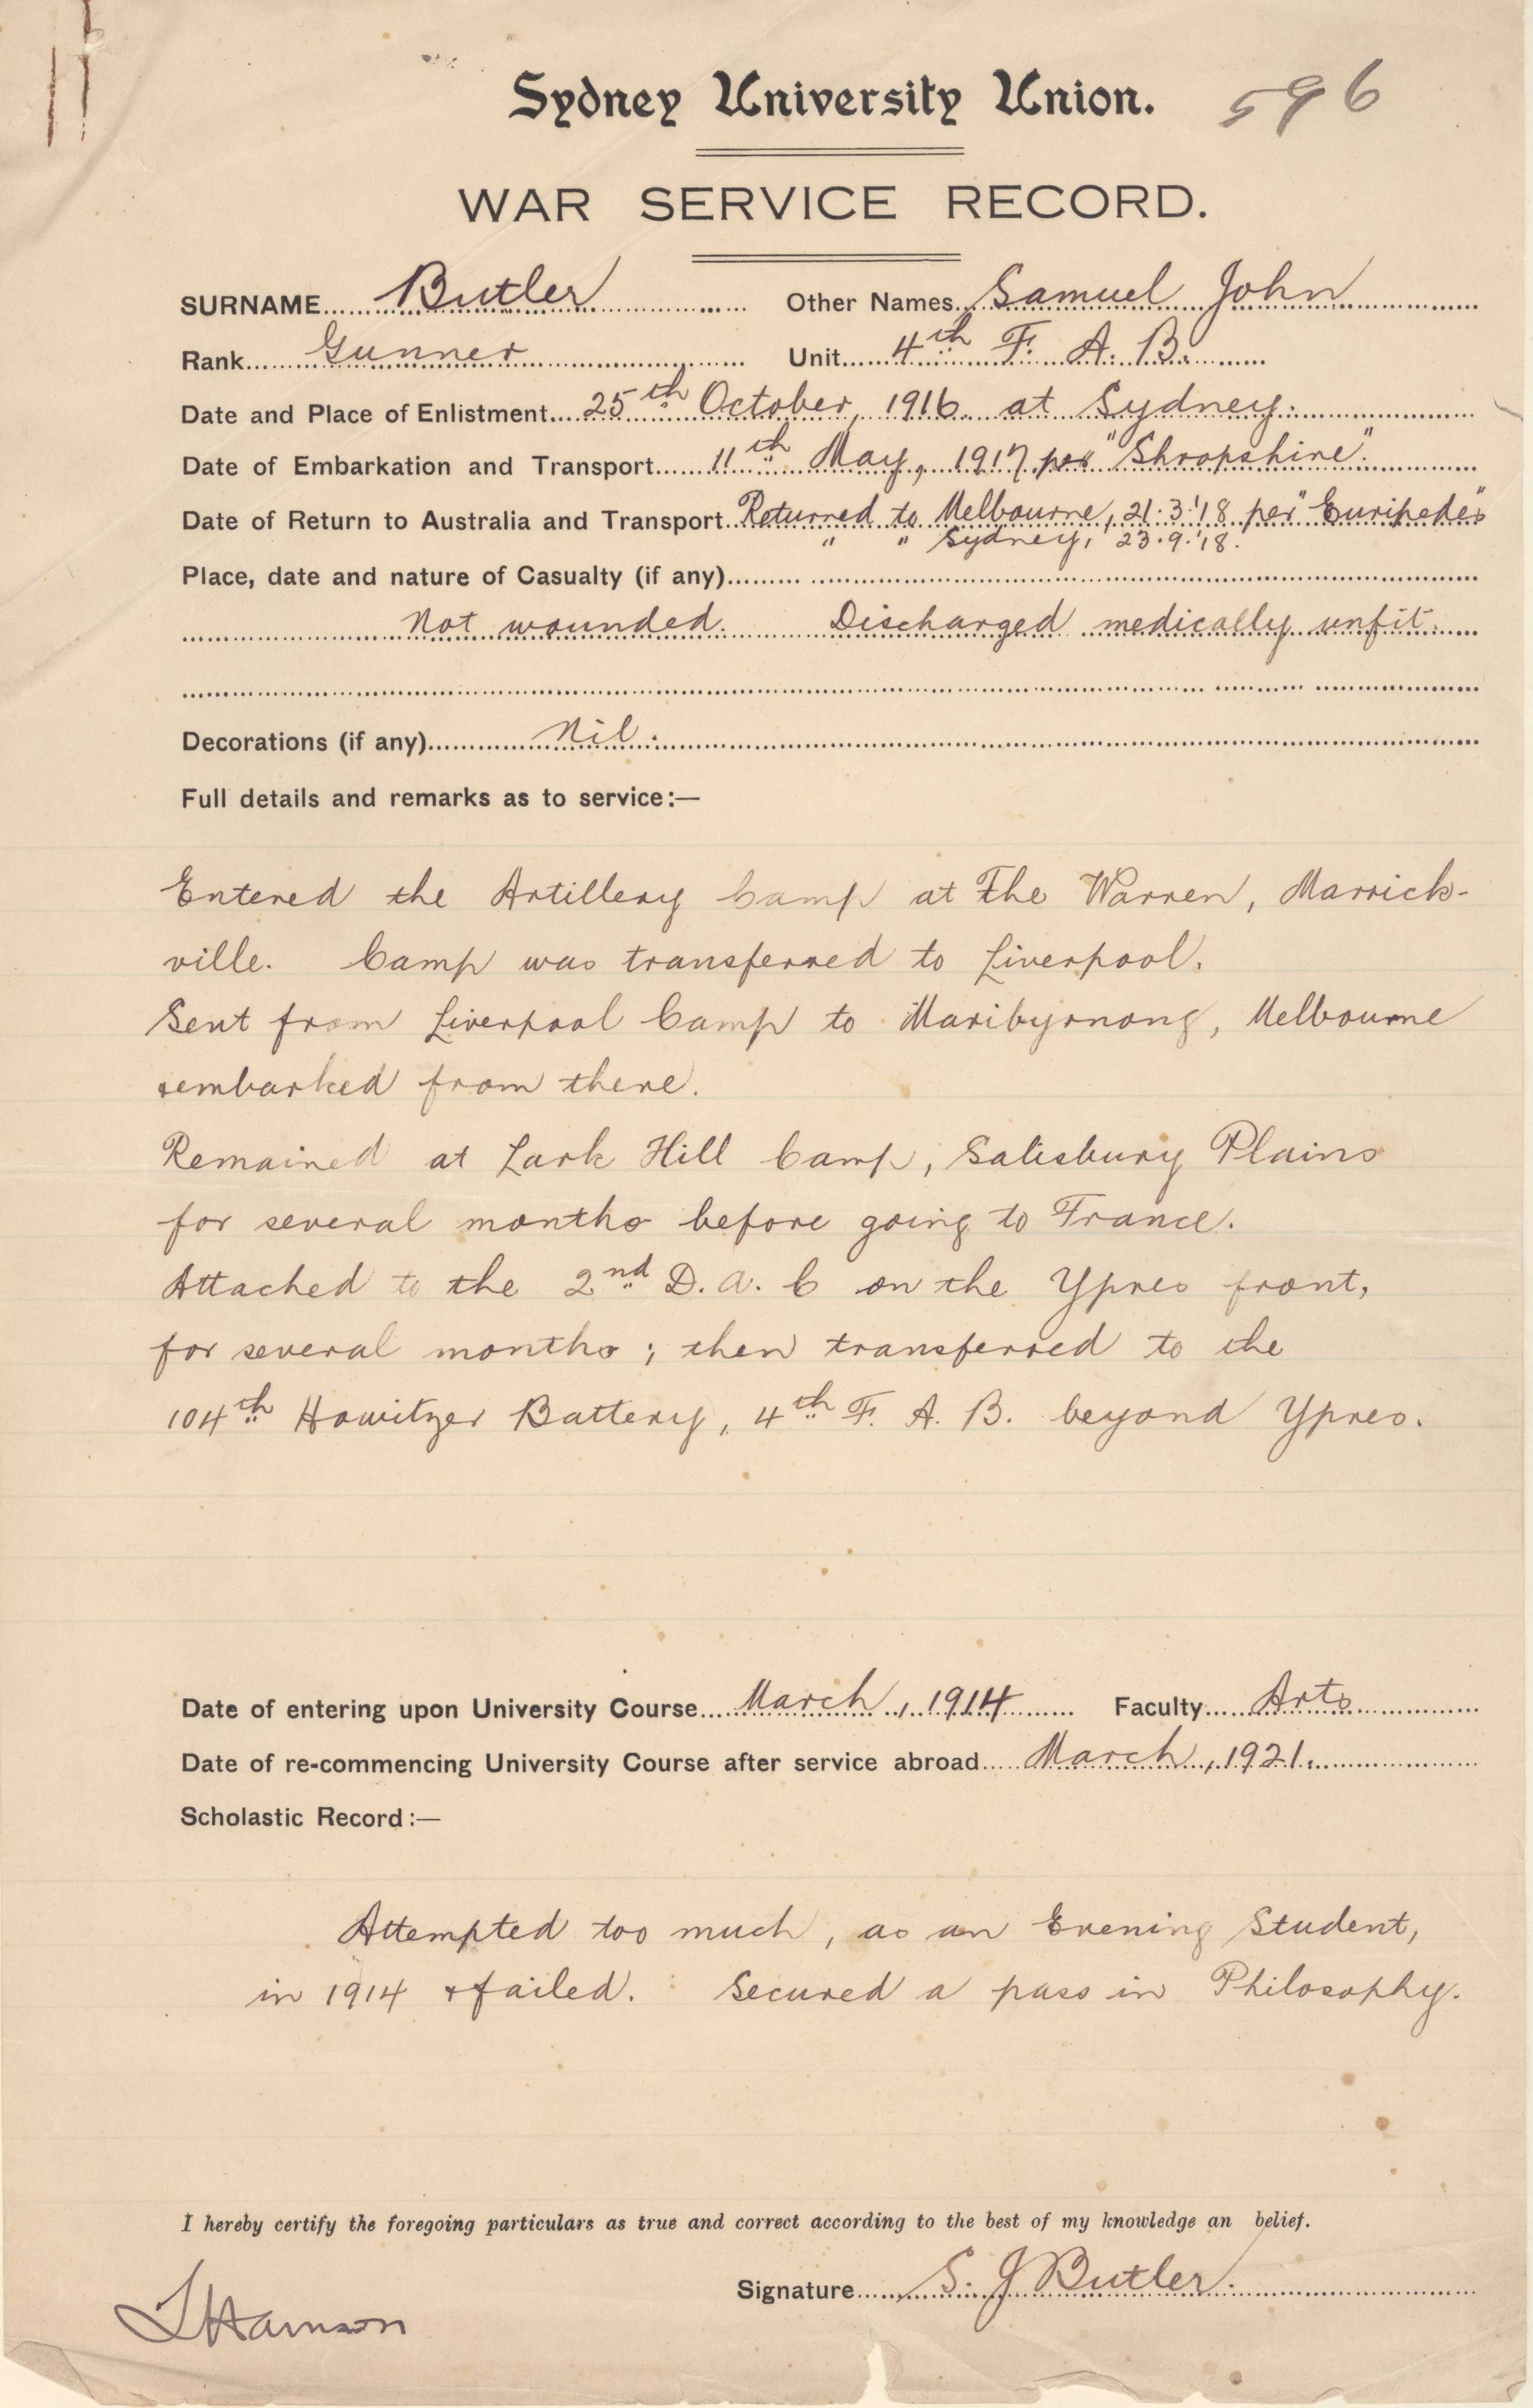 Sydney University Union. 596
WAR SERVICE RECORD.
SURNAME Butler Other Names Samuel John
Rank Gunner Unit 4th F. A. B.
Date and Place of Enlistment 25th October, 1916 at Sydney.
Date of Embarkation and Transport 11th May, 1917 per "Shropshire".
Date of Return to Australia and Transport Returned to Melbourne, 21.3.'18 per "Euripedes"
" " Sydney, 23.9.'18.
Place, date and nature of Casualty (if any)
Not wounded. Discharged medically unfit.
Decorations (if any) Nil.
Full details and remarks as to service:—
Entered the Artillery Camp at The Warren, Marrick-
ville. Camp was transferred to Liverpool.
Sent from Liverpool Camp to Maribyrnong, Melbourne
& embarked from there.
Remained at Lark Hill Camp, Salisbury Plains
for several months before going to France.
Attached to the 2nd D. A. C on the Ypres front,
for several months; then transferred to the
104th Howitzer Battery, 4th F. A. B. beyond Ypres.
Date of entering upon University Course March, 1914 Faculty Arts
Date of re-commencing University Course after service abroad March, 1921.
Scholastic Record:—
Attempted too much, as an Evening Student,
in 1914 & failed. Secured a pass in Philosophy.
I hereby certify the foregoing particulars as true and correct according to the best of my knowledge an belief.
Signature S. J Butler.